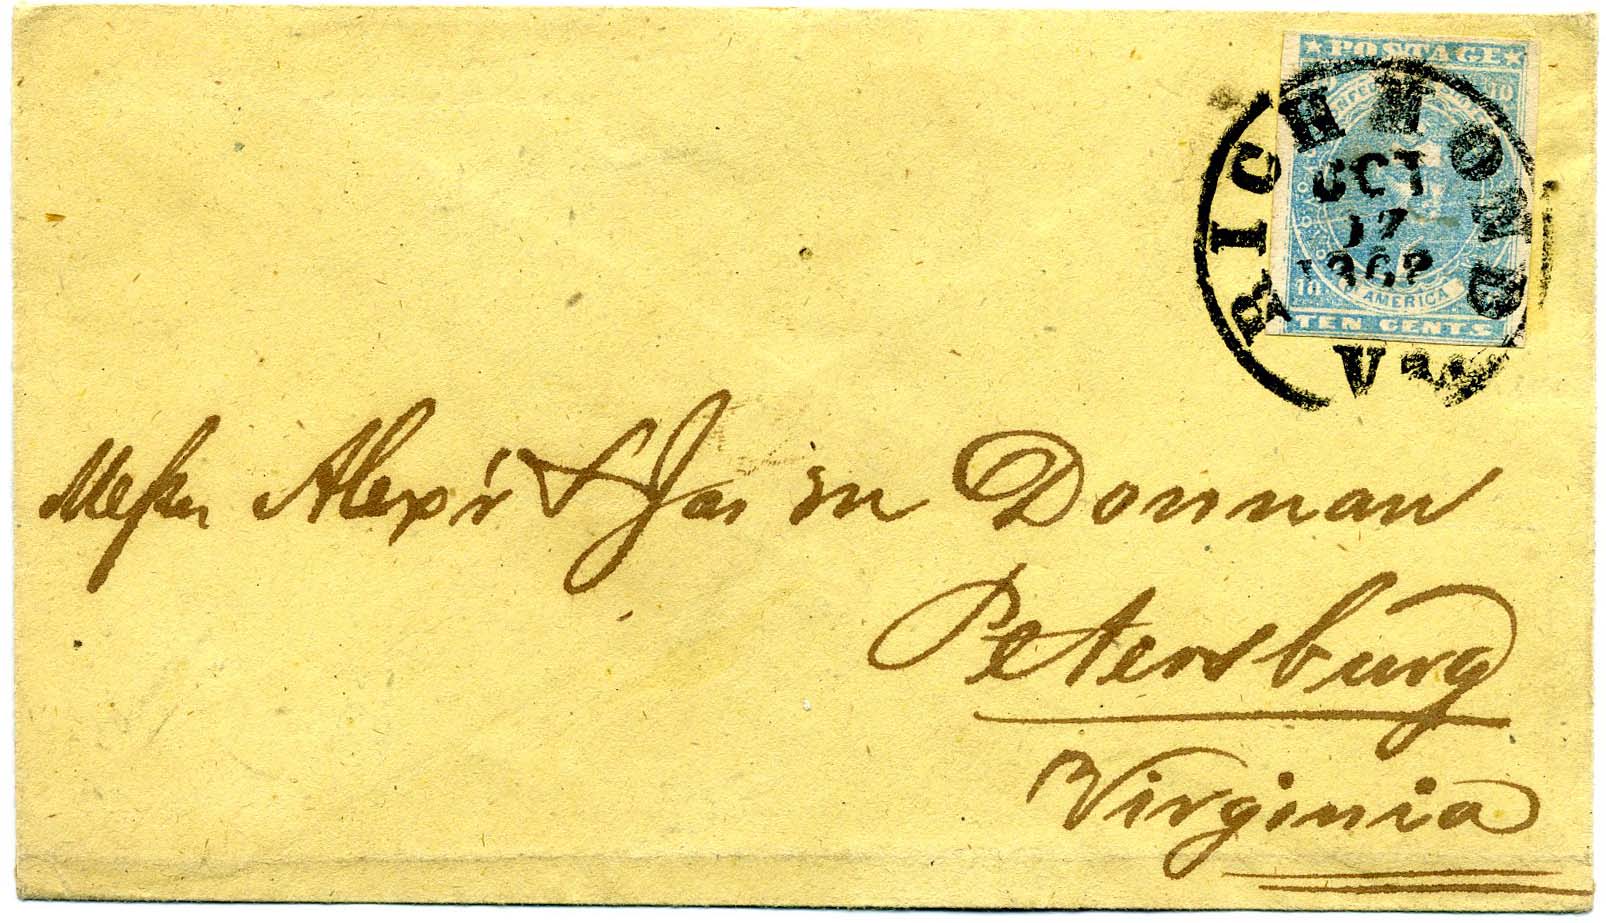 ★POSTAGE★
10
RICHMOND
OCT
17
1862
10 AMERICA
TEN CENTS
VA.
Messrs Alexr & Jas m Donnan
Petersburg
Virginia